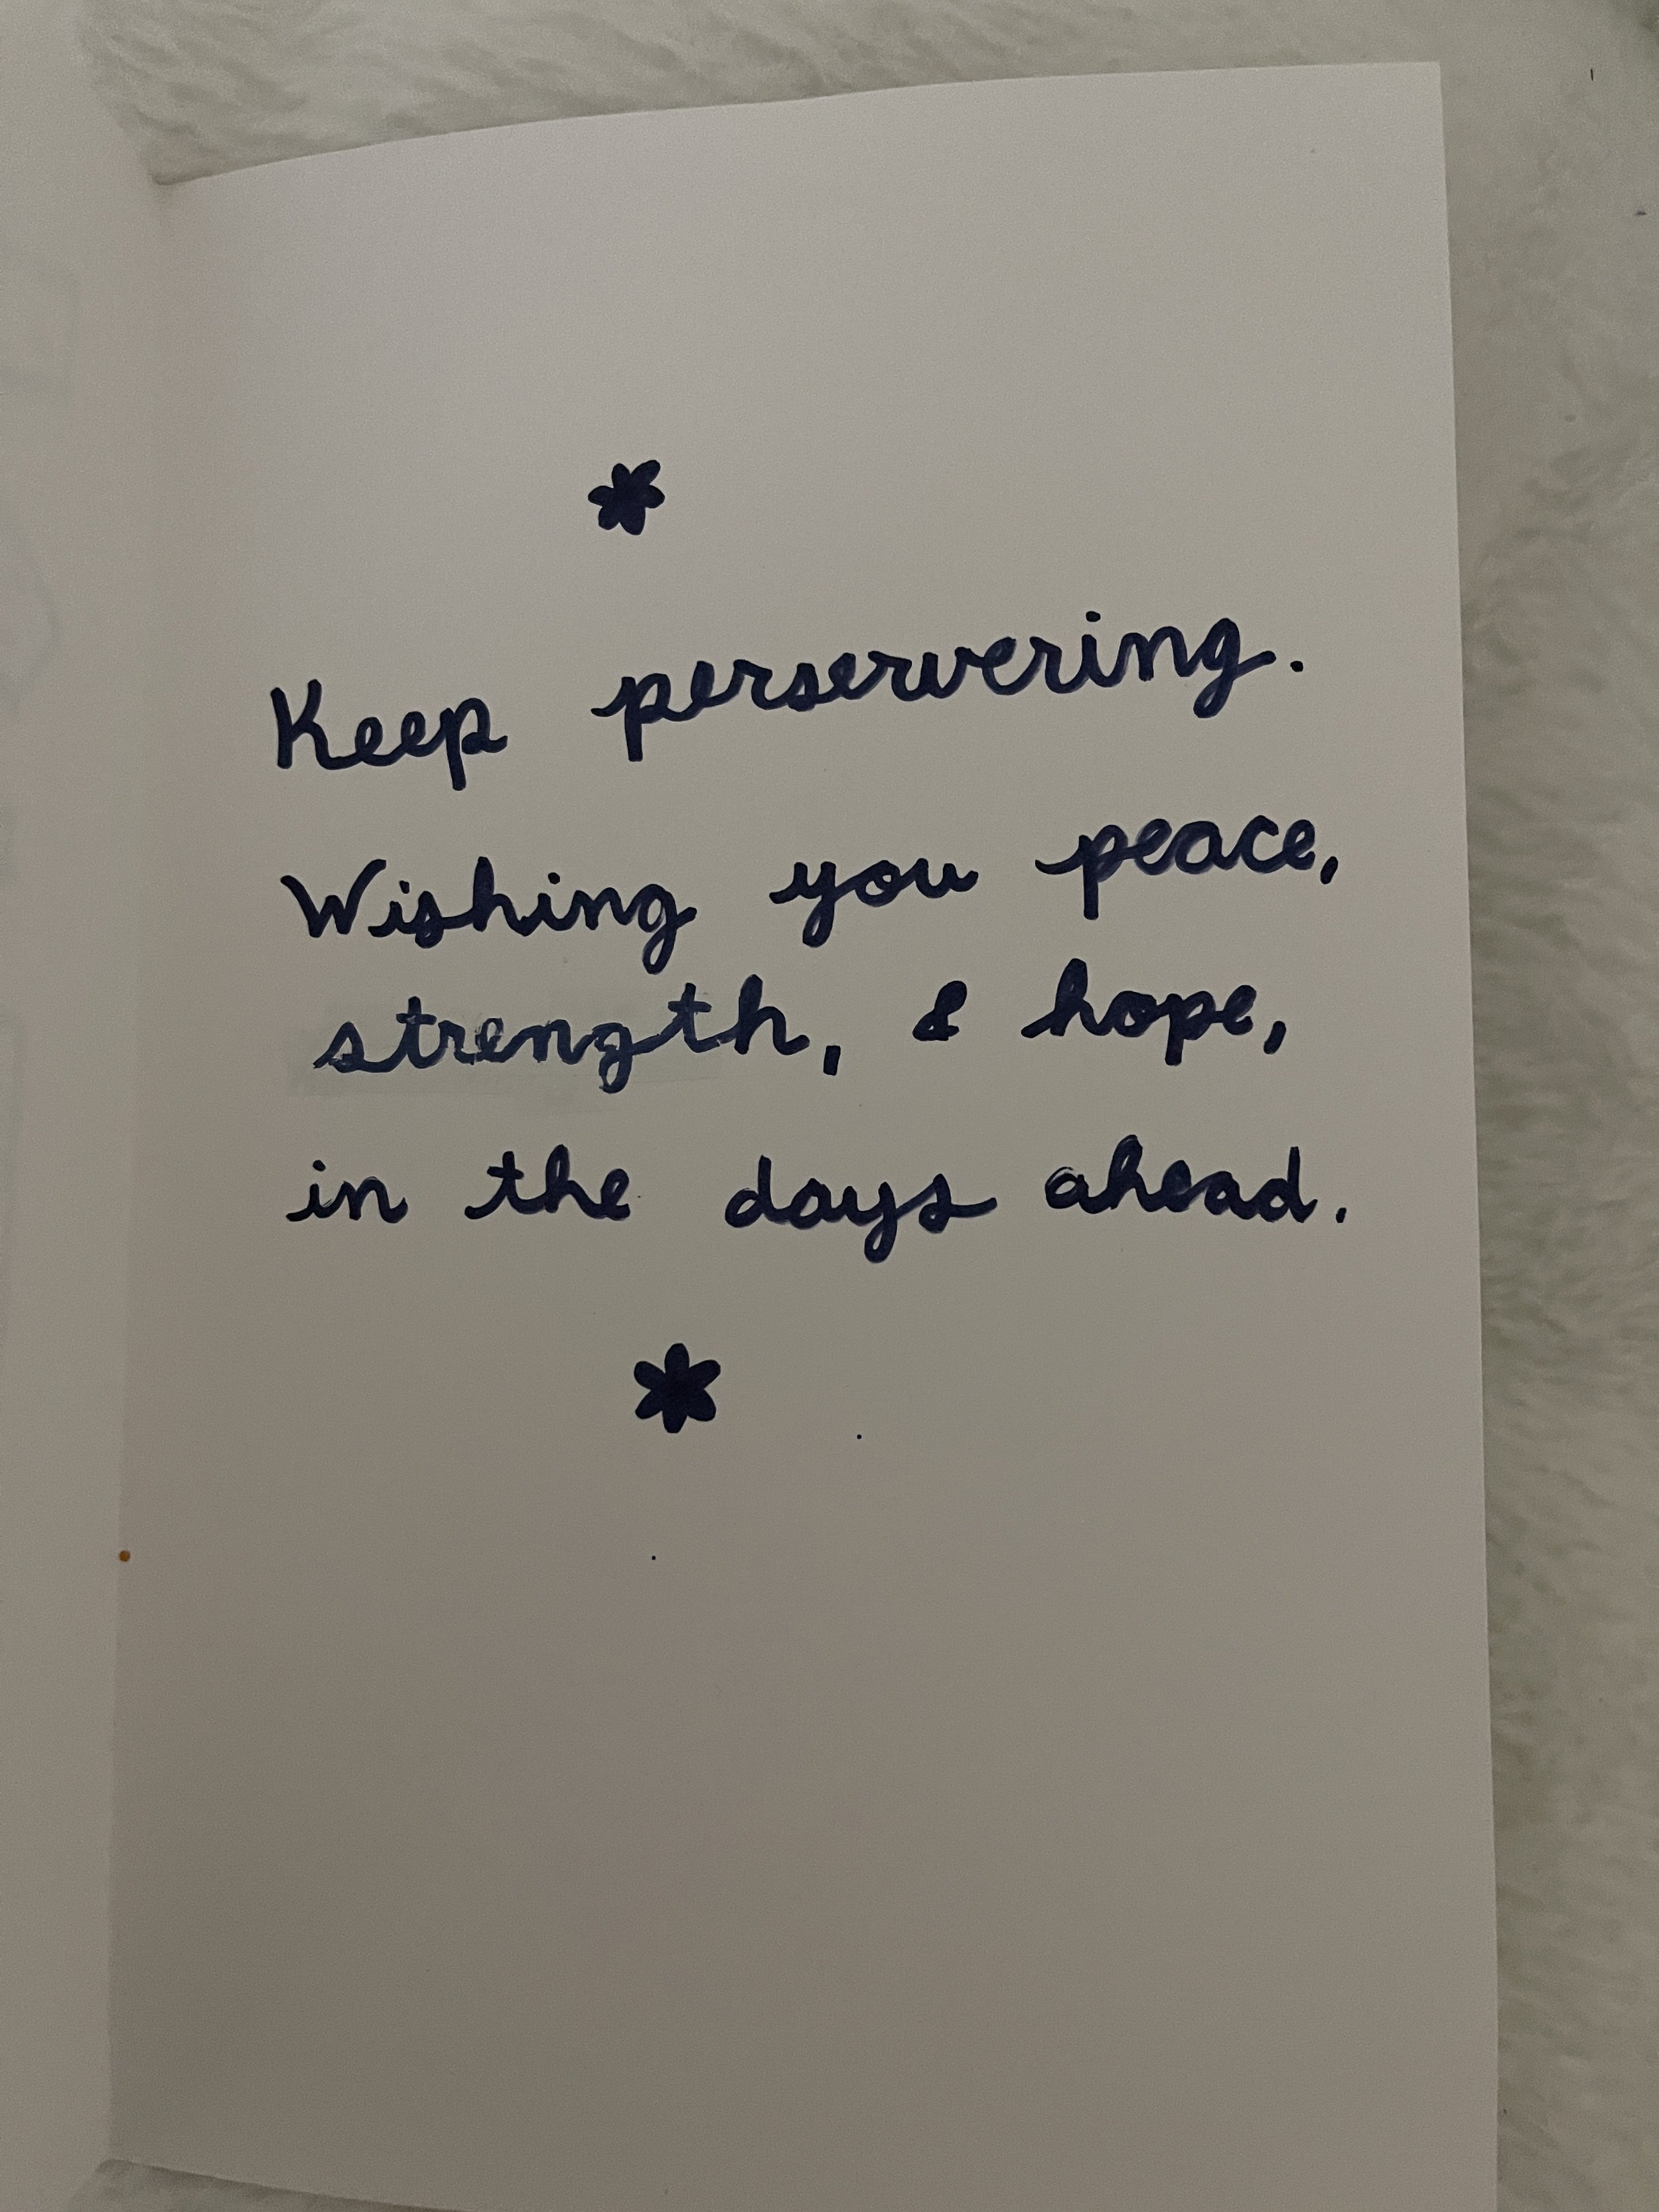 Keep perservering.
Wishing you peace,
strength, & hope,
in the days ahead.